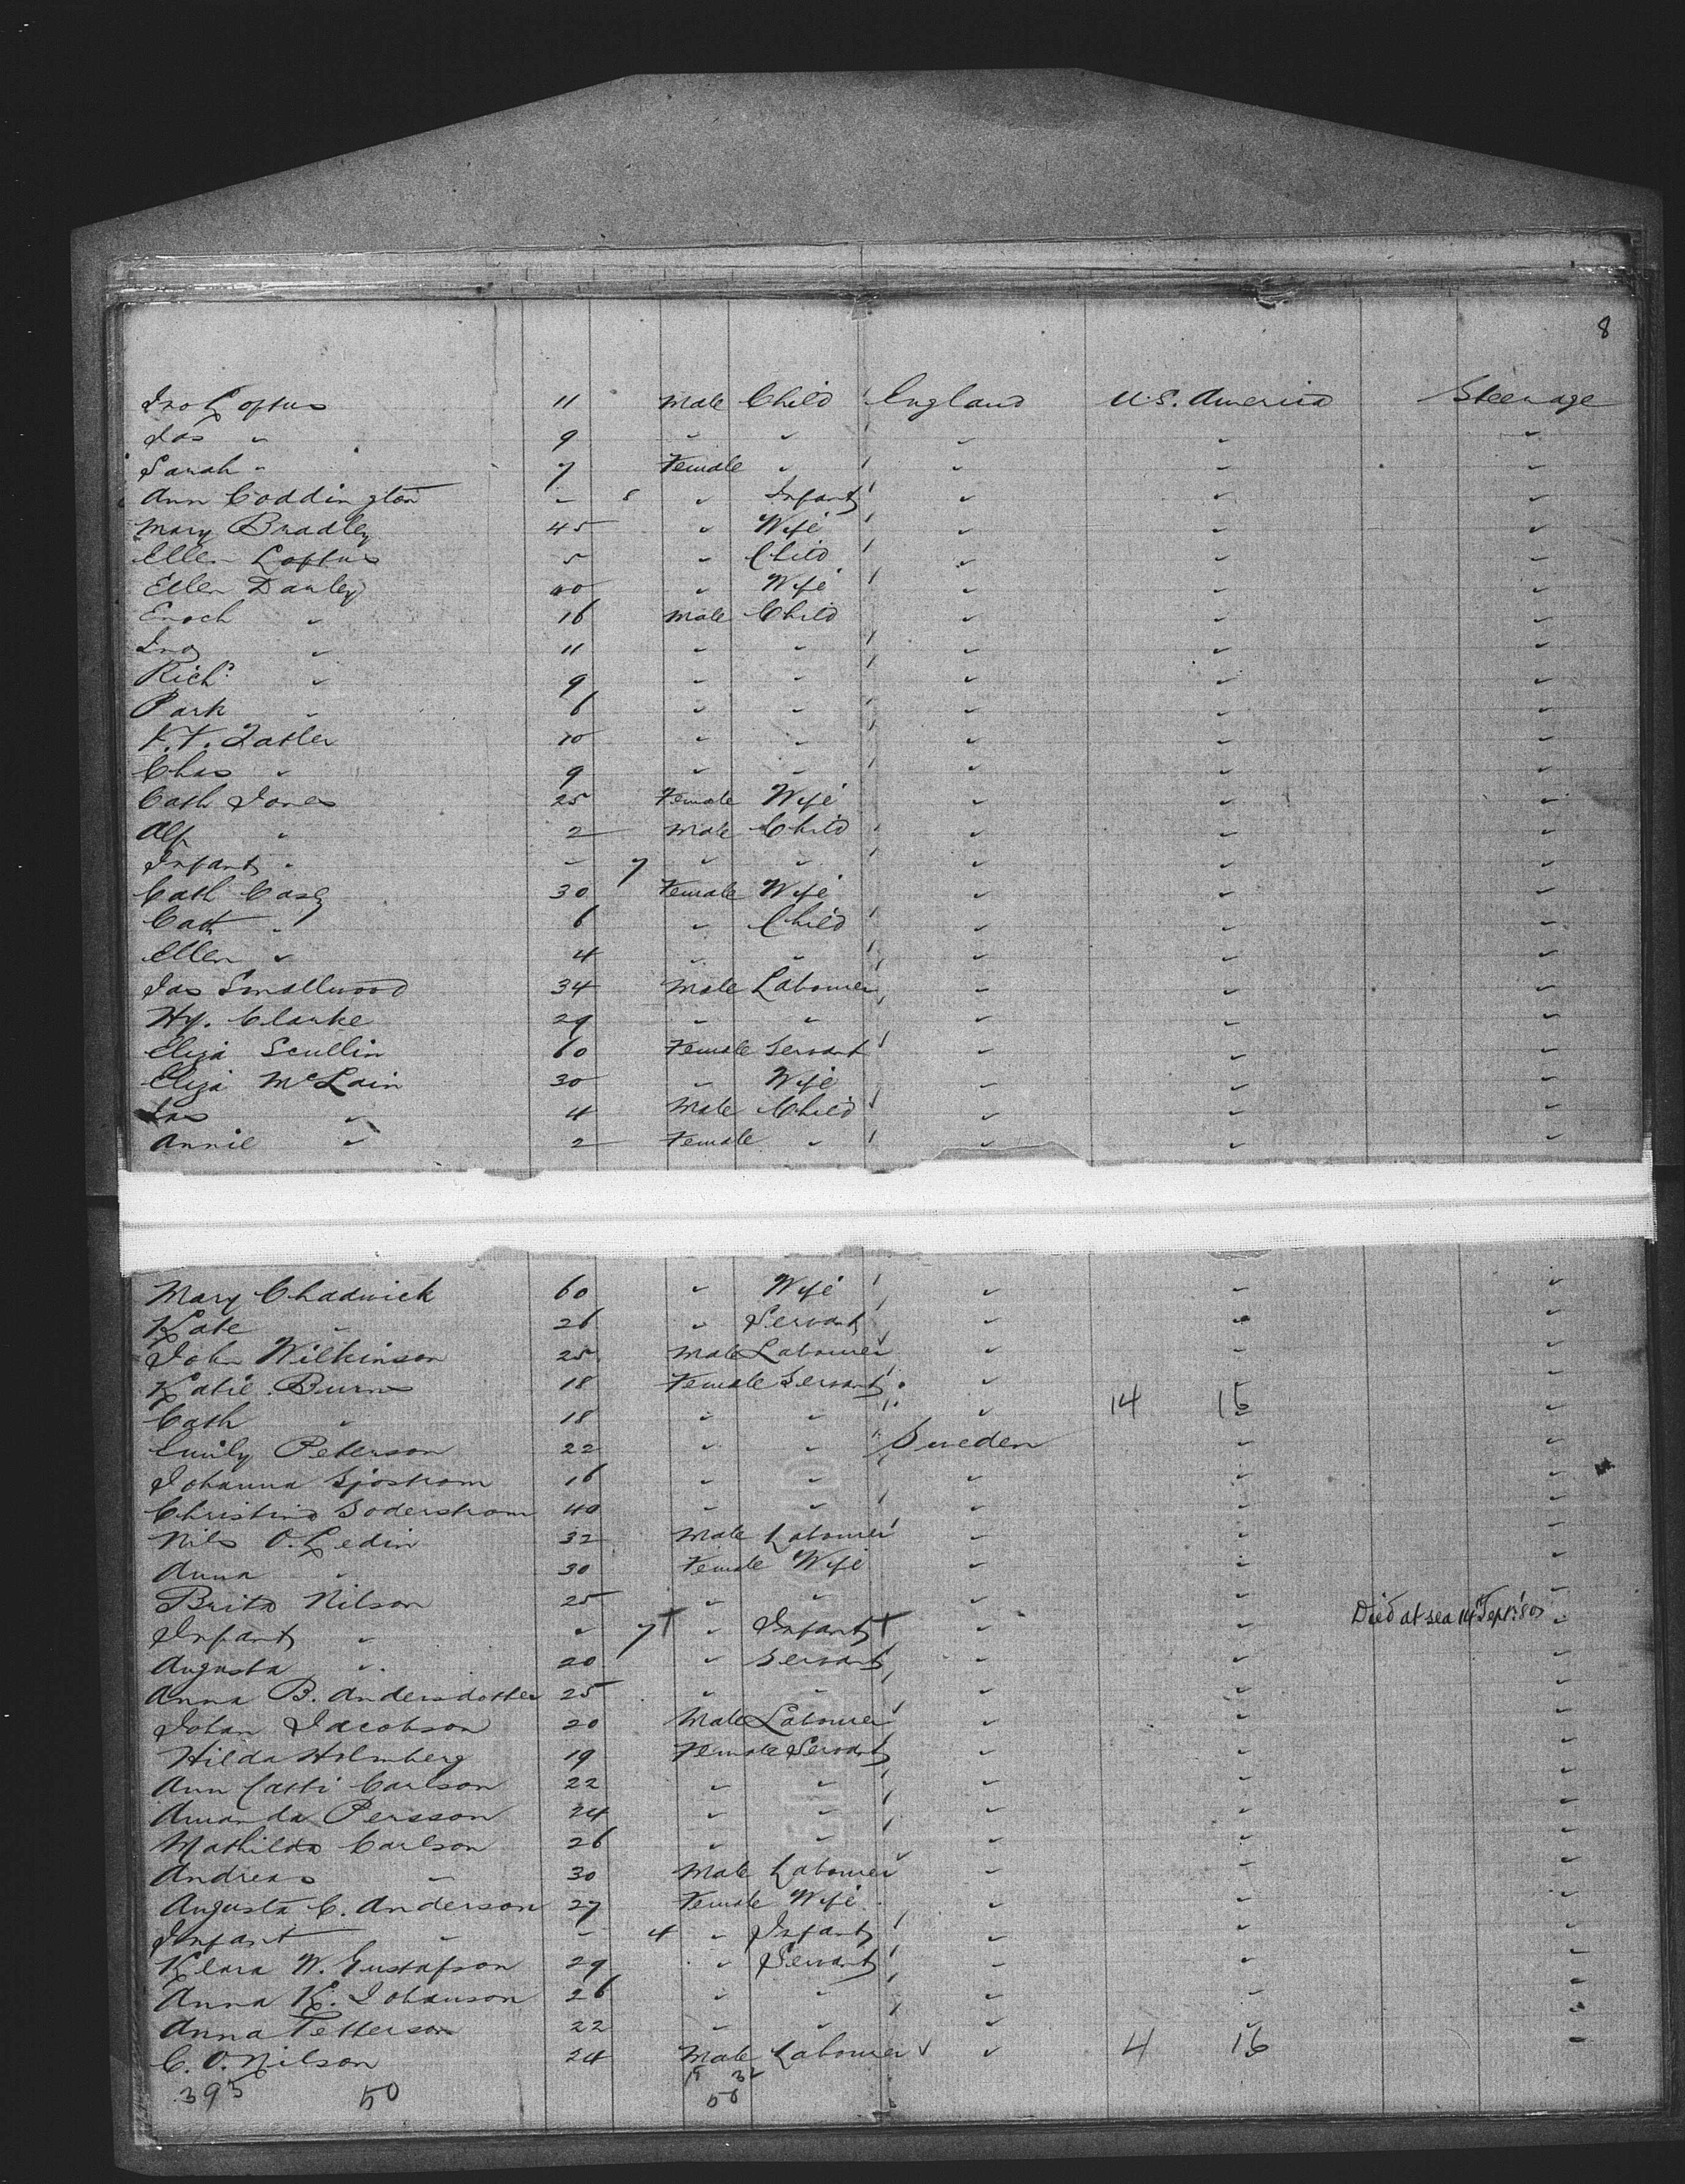 8
Jno Loftus 11 Male Child England U.S. America Steerage
Jas " 9 " " " " "
Sarah " 7 Female " " " "
Ann Coddington " 8 " Infant " " "
Mary Bradley 45 " Wife " " "
Ellen Loftus 5 " Child " " "
Ellen Danley 40 " Wife " " "
Enoch " 16 Male Child " " "
Jno " 11 " " " " "
Richd " 9 " " " " "
Park " 6 " " " " "
10 " " " " "
Chas " 9 " " " " "
Cath Jones 25 Female Wife " " "
Alf " 2 Male Child " " "
Infant " " 7 " " " " "
Cath Casey 30 Female Wife " " "
Cath " 6 " Child " " "
Ellen " 4 " " " " "
Jas Smallwood 34 Male Labourer " " "
Hy. Clarke 29 " " " " "
Eliza Scullin 60 Female Servant " " "
Eliza McLain 30 " Wife " " "
Jas " 4 Male Child " " "
Annie " 2 Female " " " "
Mary Chadwick 60 " Wife " " "
Kate " 26 " Servant " " "
John Wilkinson 25 Male Labourer " " "
Katie Burns 18 Female Servant "
Cath " 18 " " " 14 16 "
Emily Peterson 22 " " Sweden " "
Johanna Sjostrom 16 " " " " "
Christina Soderstrom 40 " " " " "
Nils O. Ledin 32 Male Labourer " " "
Anna " 30 Female Wife " " "
Brita Nilson 25 " " " " "
Infant " " 7 + " Infant + " " Died at sea 14 Sept '80 "
Augusta " 20 " Servant " " "
Anna B. Andersdotter 25 " " " " "
Johan Jacobson 20 Male Labourer " " "
Hilda Holmberg 19 Female Servant " " "
Ann Catti Carlson 22 " " " " "
Amanda Persson 24 " " " " "
Mathilda Carlson 26 " " " " "
Andreas " 30 Male Labourer " " "
Augusta C. Anderson 27 Female Wife " " "
Infant " " 4 " Infant " " "
Klara W. Gustafson 29 " Servant " " "
Anna K. Johanson 26 " " " " "
Anna Petterson 22 " " " " "
C. O. Nilson 24 Male Labourer " 4 16 "
395 50 50